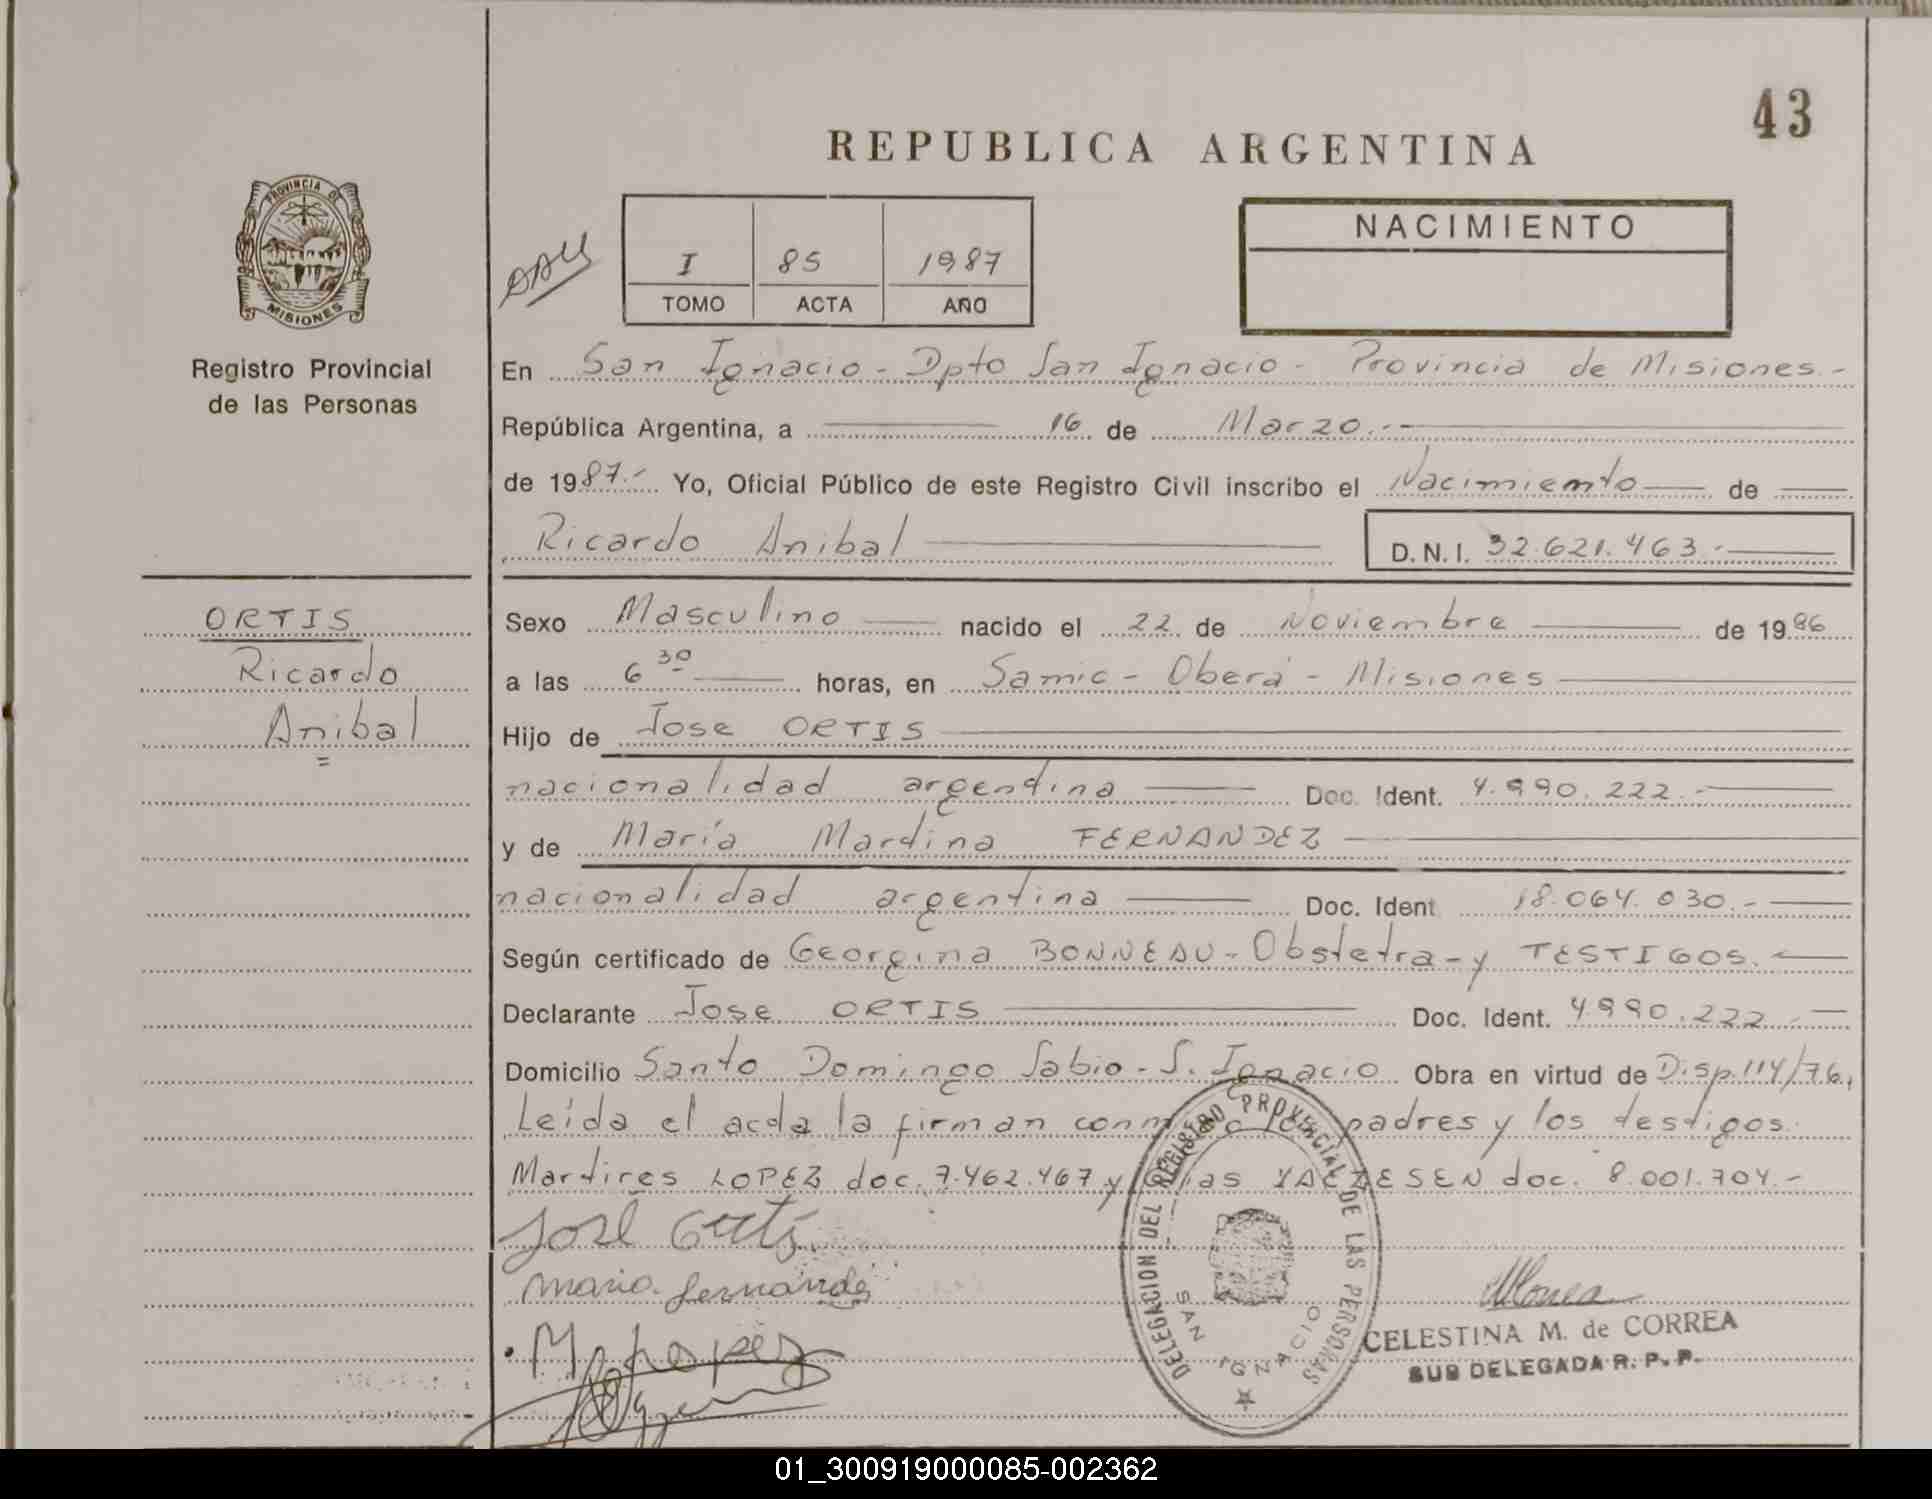 43
REPUBLICA ARGENTINA
PROVINCIA DE
MISIONES
Registro Provincial
de las Personas
I 85 1987
TOMO ACTA AÑO
NACIMIENTO
En San Ignacio - Dpto San Ignacio - Provincia de Misiones.-
República Argentina, a 16 de Marzo.-
de 1987.- Yo, Oficial Público de este Registro Civil inscribo el Nacimiento de
Ricardo Anibal D.N.I. 32.621.463.-
ORTIS
Ricardo
Anibal
=
Sexo Masculino nacido el 22 de Noviembre de 1986
a las 6 30 horas, en Samic - Oberá - Misiones
Hijo de Jose ORTIS
nacionalidad argentina Doc. Ident. 4.990.222.-
y de María Martina FERNANDEZ
nacionalidad argentina Doc. Ident 18.064.030.-
Según certificado de Georgina BONNEAU - Obstetra - y TESTIGOS.
Declarante Jose ORTIS Doc. Ident. 4990.222.-
Domicilio Santo Domingo Sabio - S. Ignacio Obra en virtud de Disp. 114/76,
Leída el acta la firman conmigo los padres y los testigos
Martires LOPEZ doc. 7.462.467 y doc. 8.001.704.-
José Ortis
Maria fernande
M Lopez
DELEGACION DEL REGISTRO PROVINCIAL DE LAS PERSONAS
SAN IGNACIO
CELESTINA M. de CORREA
SUB DELEGADA R. P. P.
01_300919000085-002362